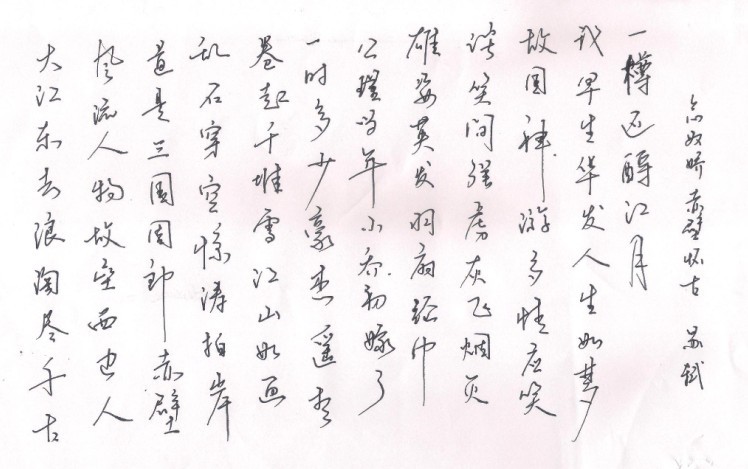 大江东去浪淘尽千古
风流人物故垒西边人
道是三国周郎赤壁
乱石穿空惊涛拍岸
卷起千堆雪江山如画
一时多少豪杰遥想
公瑾当年小乔初嫁了
雄姿英发羽扇纶巾
谈笑间强虏灰飞烟灭
故国神游多情应笑
我早生华发人生如梦
一樽还酹江月
念奴娇 赤壁怀古 苏轼